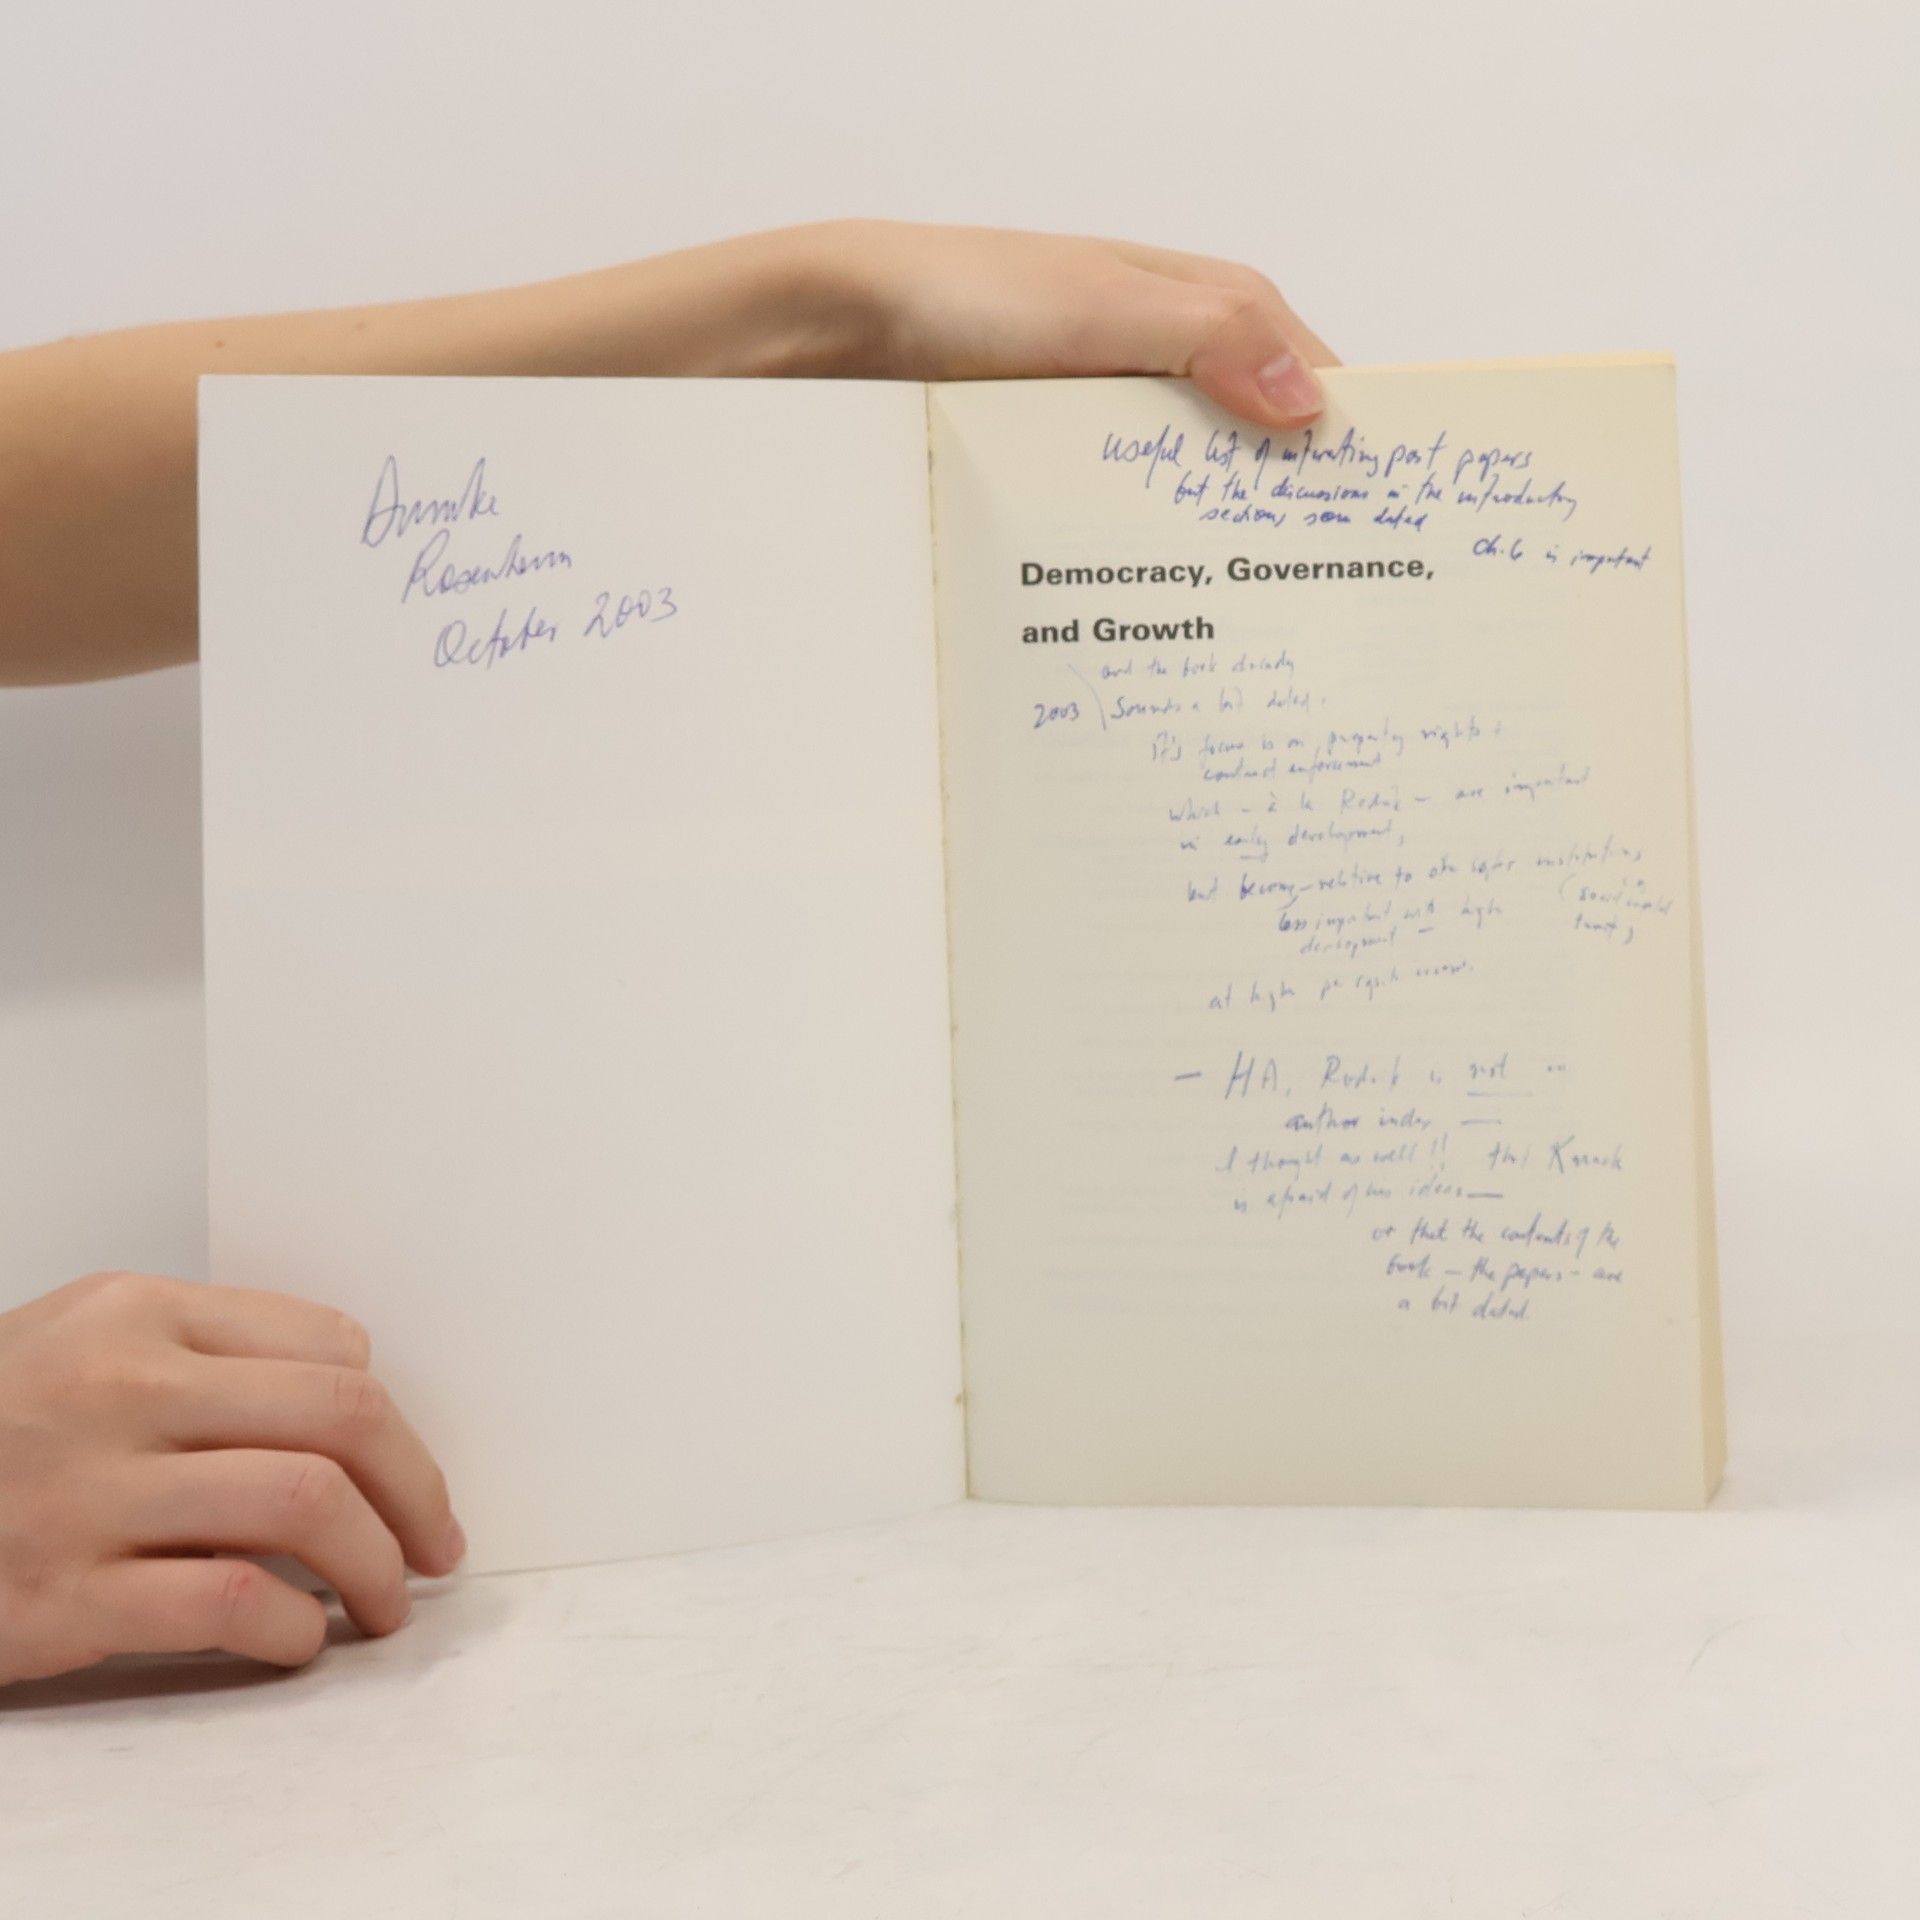 October 2003
useful list of interesting past papers
but the discussions in the introductory
sections, some dated
Ch. 6 is important
Democracy, Governance,
and Growth
and the book already
2003 Sounds a bit dated.
It's focus is on property rights +
contract enforcement
which – à la Rodrik – are important
in early development,
but become – relative to other institutions
less important with high
development –
at high per capita income.
– HA, Rodrik is not in
author index —
I thought as well!! that Knack
is afraid of his ideas —
or that the contents of the
book – the papers – are
a bit dated.